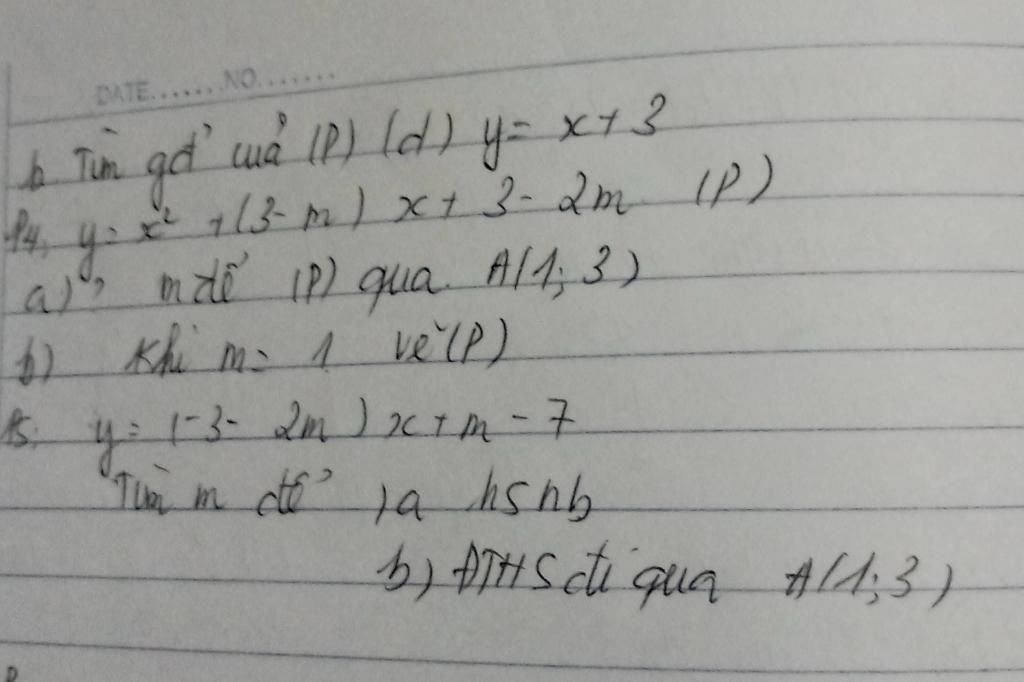 DATE.......NO.......
b Tìm gđ' của (P) (d) y = x + 3
P4, y = x² + (3 - m) x + 3 - 2m (P)
a) ? m để (P) qua A(1; 3)
b) Khi m = 1 vẽ (P)
B5, y = (-3 - 2m) x + m - 7
Tìm m để )a hsnb
b) ĐTHS đi qua A(1; 3)